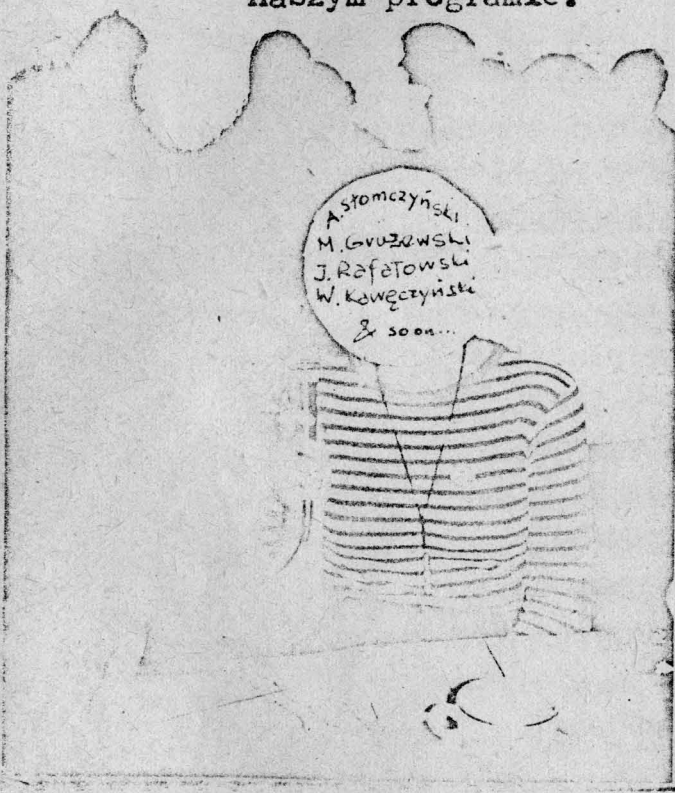 naszym programie.
A. Słomczyński
M. Grużewski
J. Rafałowski
W. Kawęczyński
& soon...